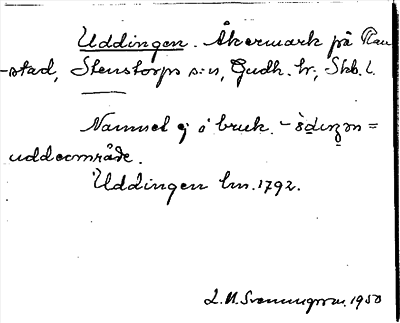 Uddingen. Åkermark på Ran-
stad, Stenstorps s:n, Gudh. hr, Skb. l.
Namnet ej i bruk. -
uddeområde.
Uddingen lm. 1792.
1950